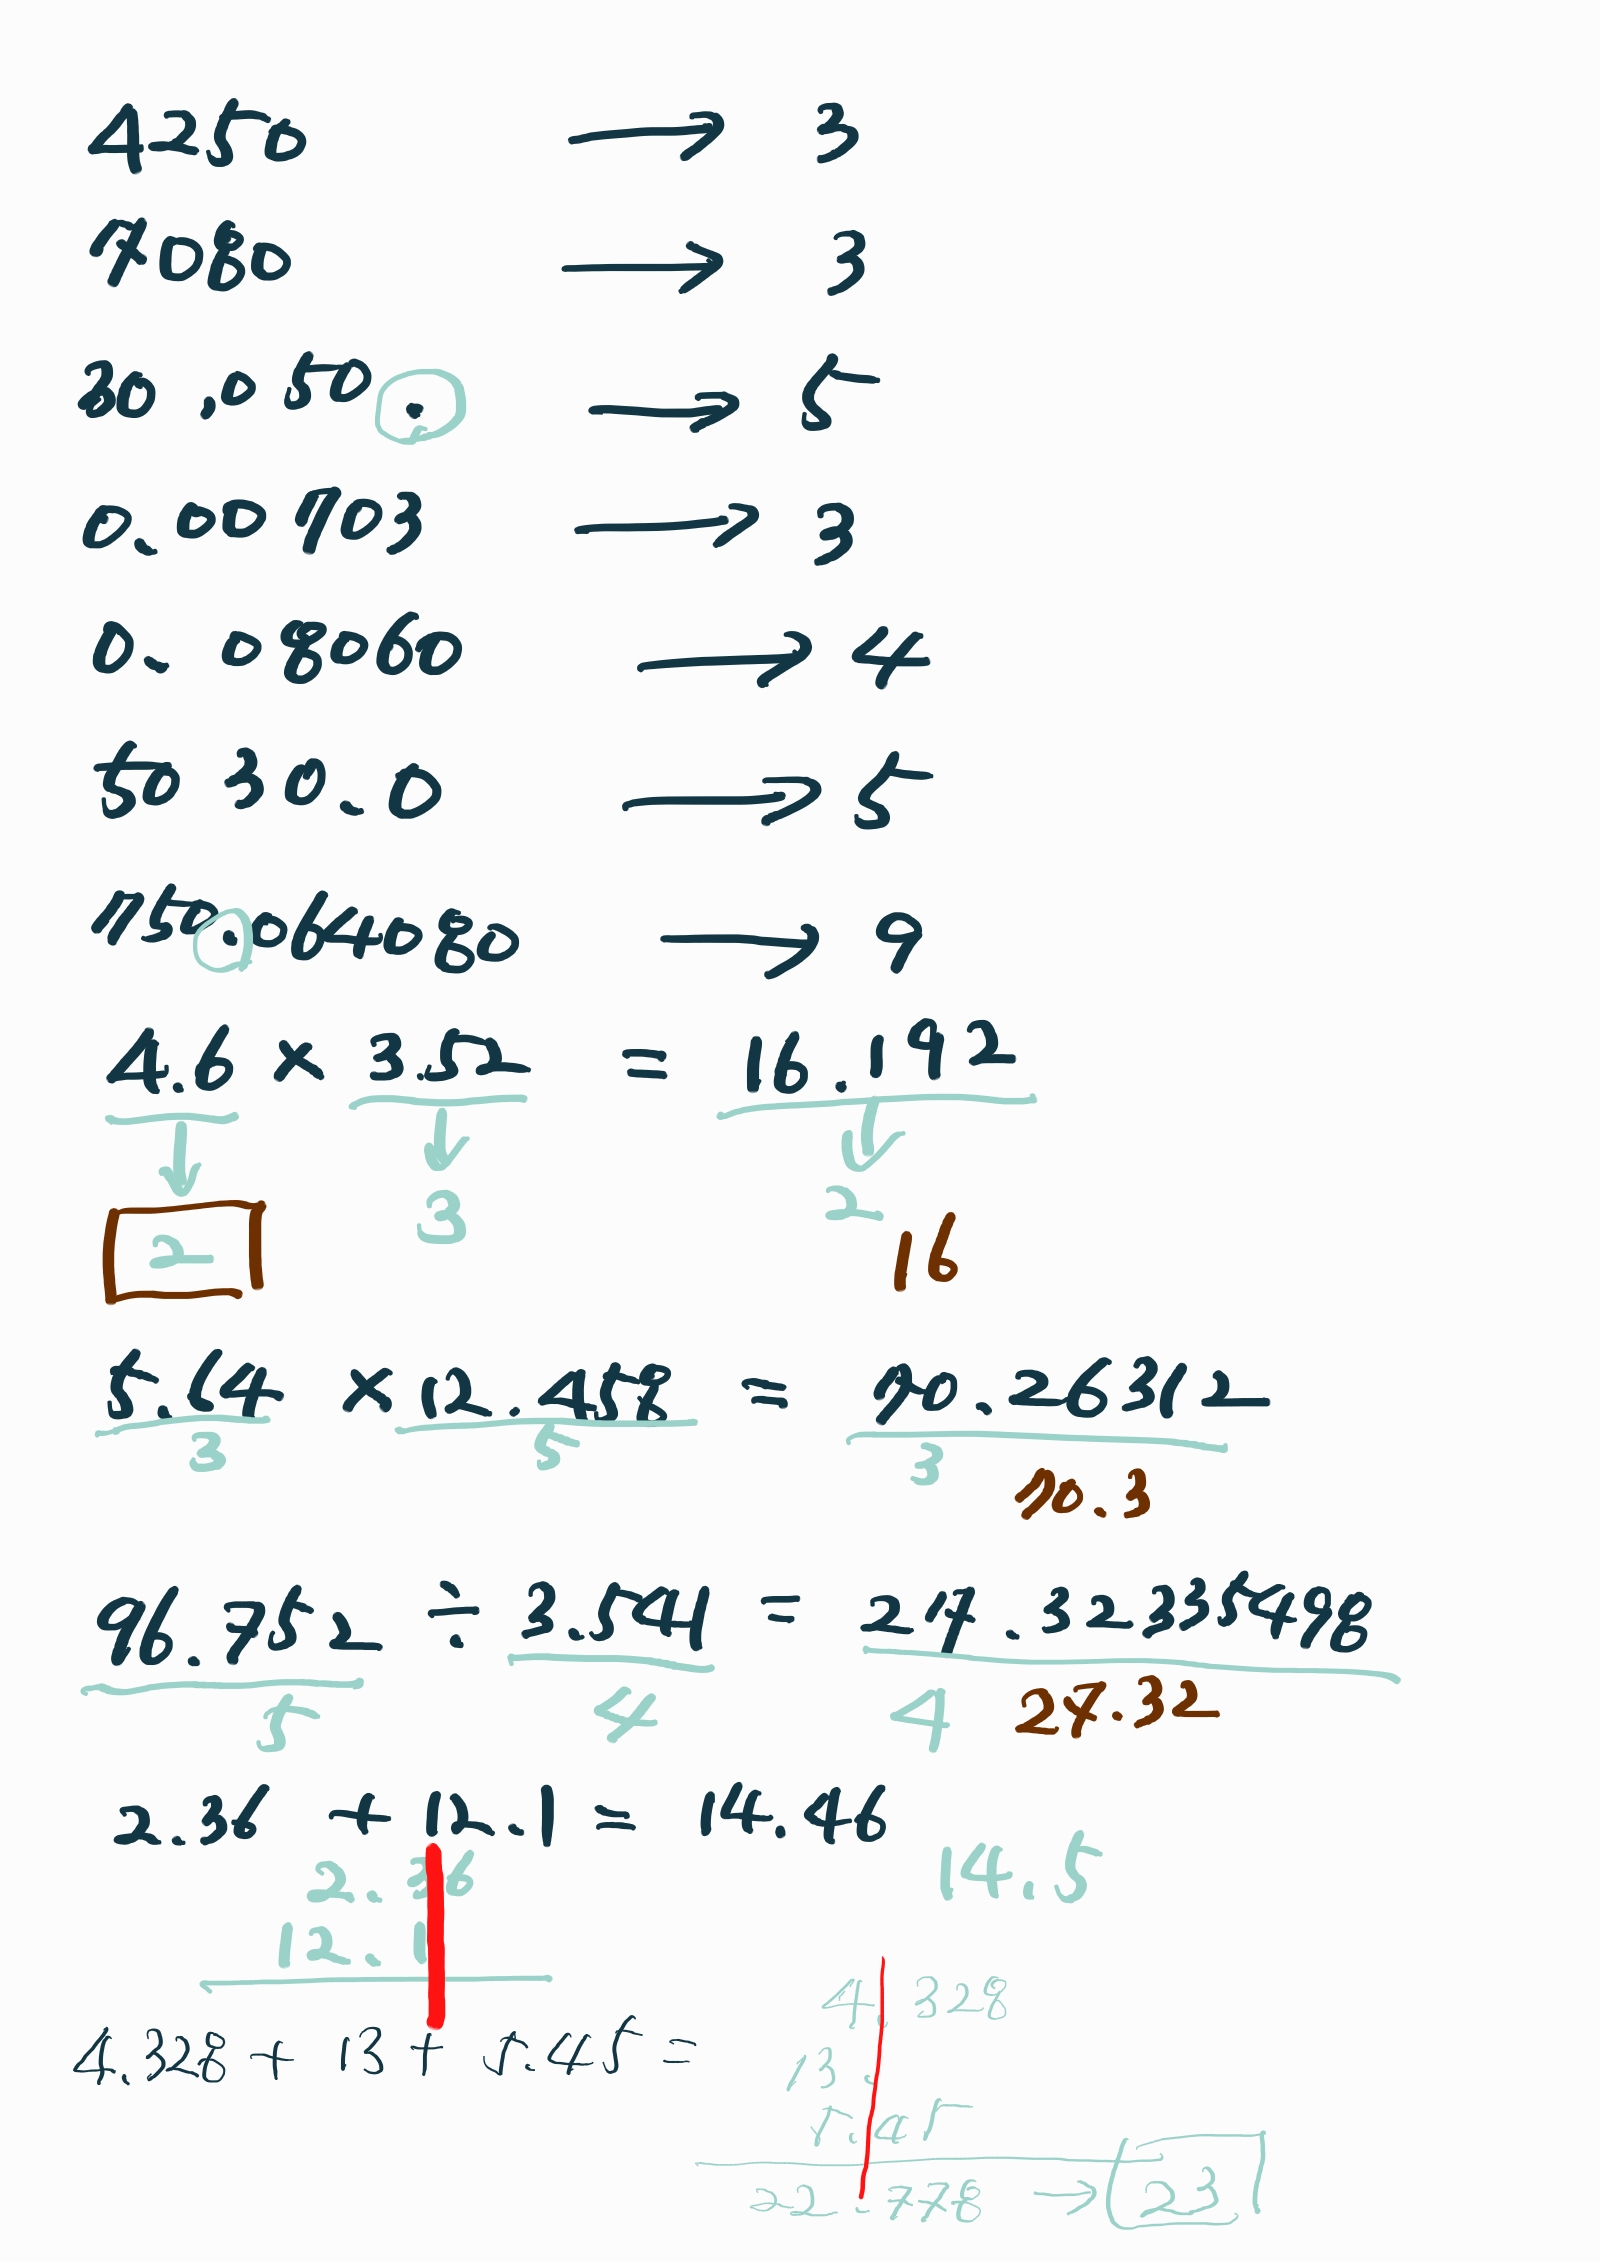 4250 → 3
7080 → 3
30,050. → 5
0.00703 → 3
0.08060 → 4
5030.0 → 5
750.064080 → 9
4.6 × 3.52 = 16.192
2 3 2
16
5.64 × 12.458 = 70.26312
3 5 3
70.3
96.752 ÷ 3.541 = 27.32335498
5 4 4 27.32
2.36 + 12.1 = 14.46
2.36 14.5
12.1
4.328 + 13 + 5.45 =
4.328
13.
5.45
22.778 → 23